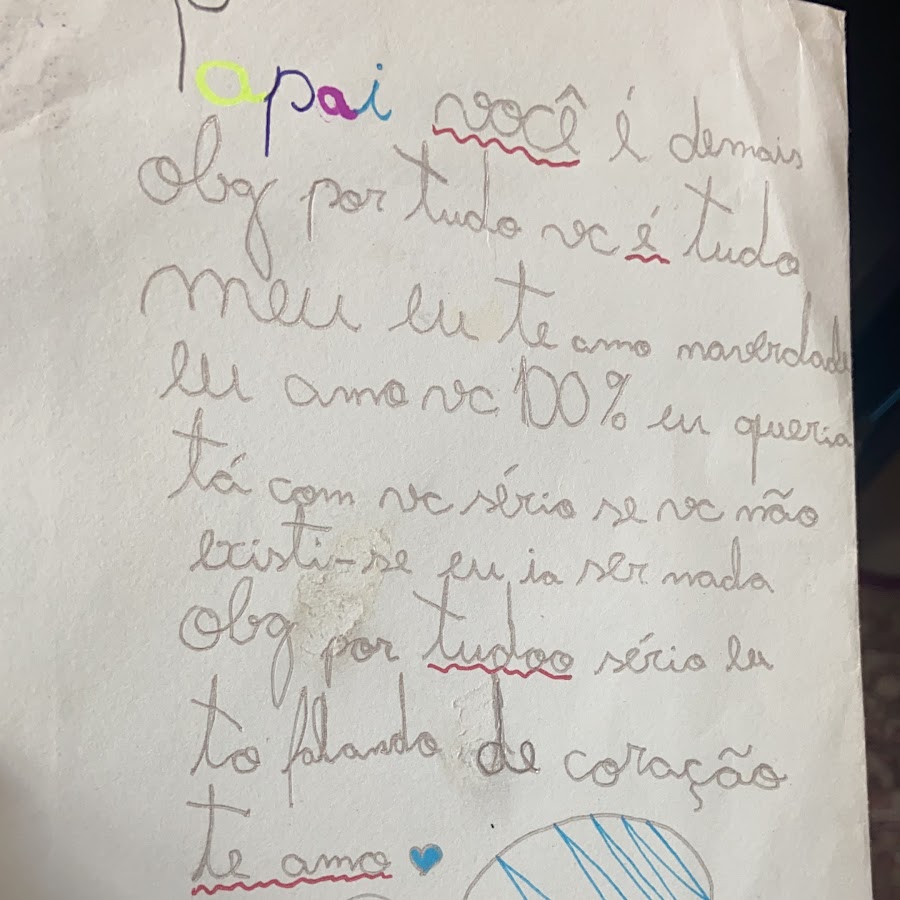 Papai você é demais
obg por tudo vc é tudo
meu eu te amo naverdade
eu amo vc 100% eu queria
tá com vc sério se vc não
existi-se eu ia ser nada
obg por tudoo sério eu
to falando de coração
te amo